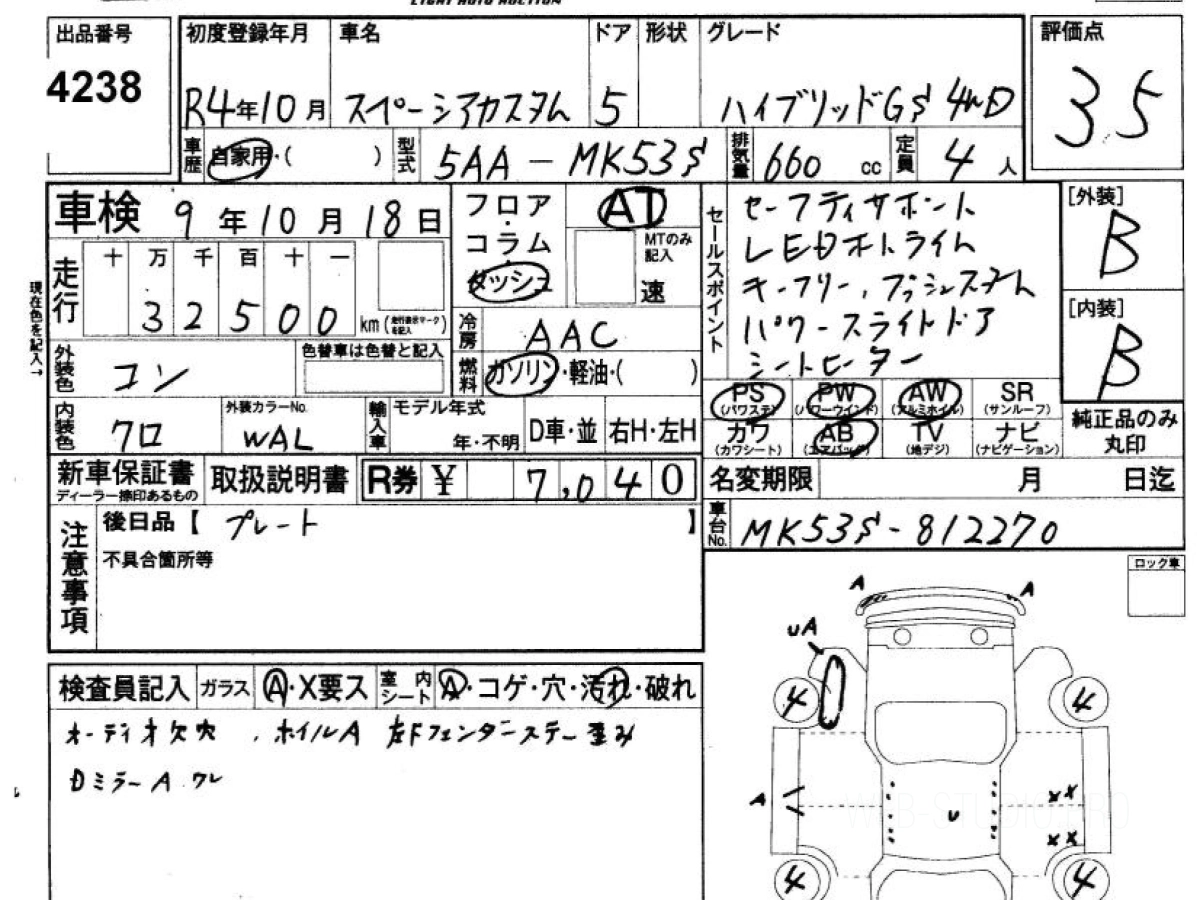 LIGHT AUTO AUCTION
出品番号 初度登録年月 車名 ドア 形状 グレード 評価点
4238 R4年10月 スペーシアカスタム 5 ハイブリッドGS 4WD 3.5
車歴 自家用・( ) 型式 5AA-MK53S 排気量 660 cc 定員 4人
車検 9年10月18日
フロア・コラム・ダッシュ AT
MTのみ記入 速
セールスポイント
セーフティサポート
LEDオートライト
キーフリー、プッシュスタート
パワースライドドア
シートヒーター
[外装] B
[内装] B
現在色を記入→
走行 十 万 千 百 十 一
32500 km (走行表示マークを記入)
冷房 AAC
外装色 コン 色替車は色替と記入
燃料 ガソリン・軽油・( )
PS (パワステ) PW (パワーウインド) AW (アルミホイル) SR (サンルーフ)
カワ (カワシート) AB (エアバッグ) TV (地デジ) ナビ (ナビゲーション)
純正品のみ丸印
内装色 クロ 外装カラーNo. WAL 輸入車 モデル年式 年・不明 D車・並 右H・左H
新車保証書 ディーラー捺印あるもの 取扱説明書 R券 ¥ 7,040
名変期限 月 日迄
車台No. MK53S-812270
注意事項
後日品【 プレート 】
不具合箇所等
ロック車
検査員記入 ガラス A・X要ス 室内シート A・コゲ・穴・汚れ・破れ
オーディオ欠穴、ホイルA 左Fフェンダーステー歪み
Dミラー A ワレ
A A
UA
4 4
A U XX
XX
4 4
WEB-STUDIO.PRO